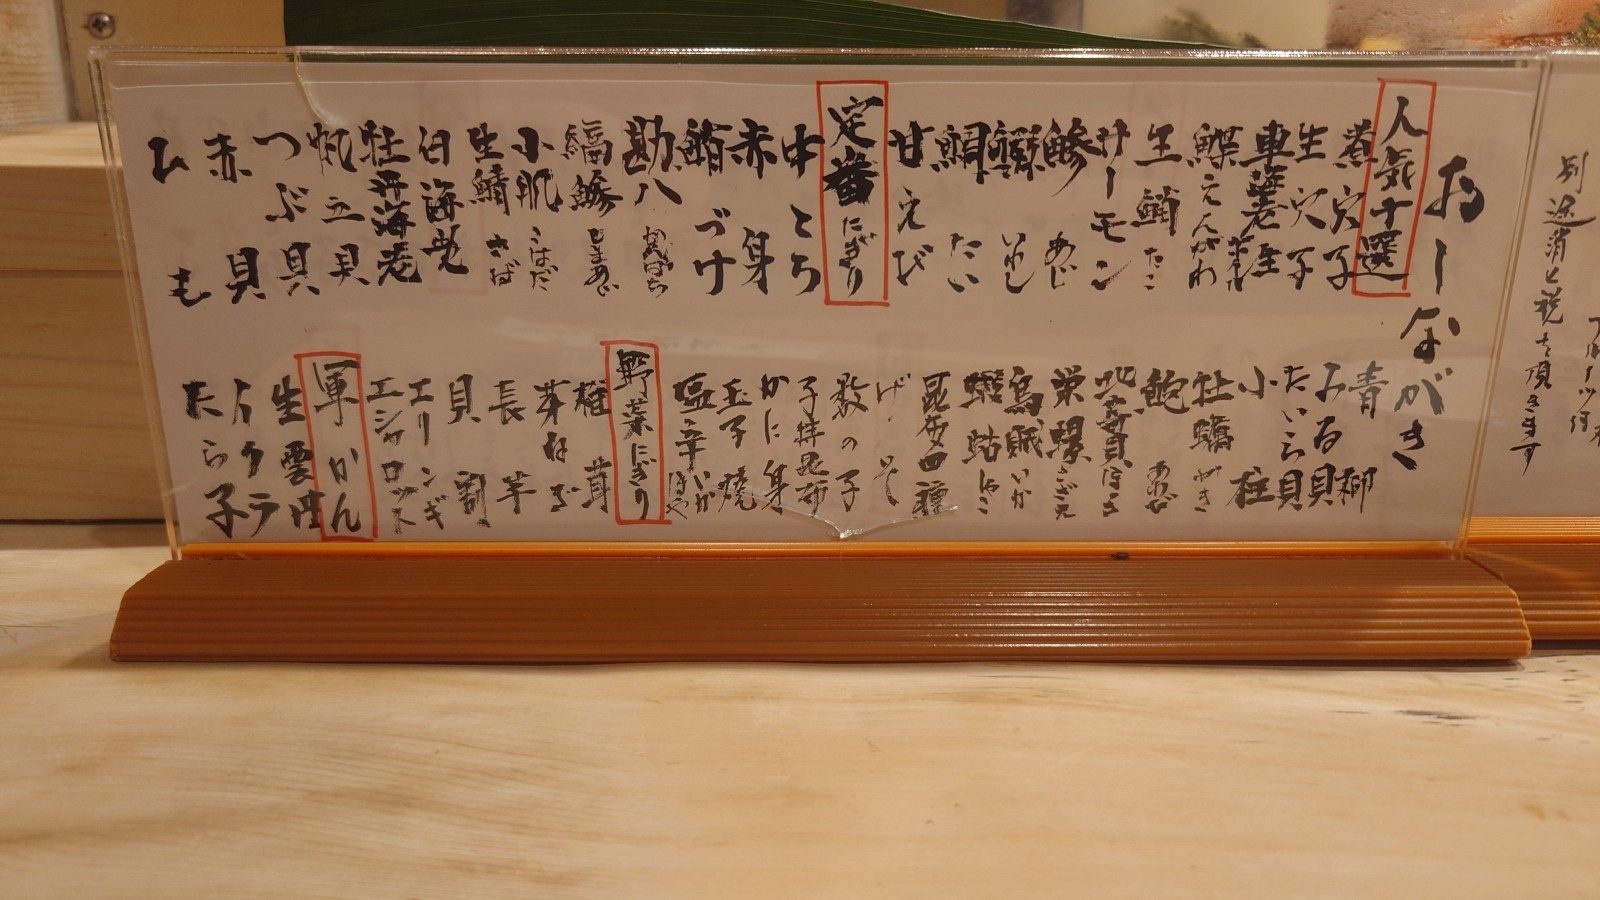 おしながき
人気十選
煮穴子
生穴子
車海老 生
鰈えんがわ
生鮹 たこ
サーモン
鯵 あじ
鰯 いわし
鯛 たい
甘えび
定番にぎり
中とろ
赤身
鮪づけ
勘八 かんぱち
縞鯵 しまあじ
小肌 こはだ
生鯖 さば
白海老
牡丹海老
帆立貝
つぶ貝
赤貝
ひも
青柳
みる貝
たいら貝
小柱
牡蠣 かき
鮑 あわび
北寄貝 ほっき
栄螺 さざえ
烏賊 いか
蝦蛄 しゃこ
げそ
数の子
子持昆布
かに身
玉子焼
塩辛 いか ほや
野菜にぎり
椎茸
芽ねぎ
長芋
貝割
エリンギ
エシャロット
軍かん
生雲丹
イクラ
たら子
別途消費税を頂きます